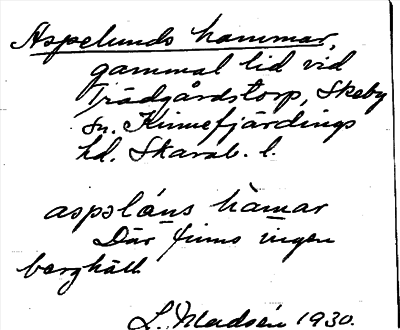 Aspelunds hammar,
gammal lid vid
Trädgårdstorp, Skeby
sn. Kinnefjärdings
hd. Skarab. l.
aspeláns hàmar
Där finns ingen
berghäll
L. Madsén 1930.